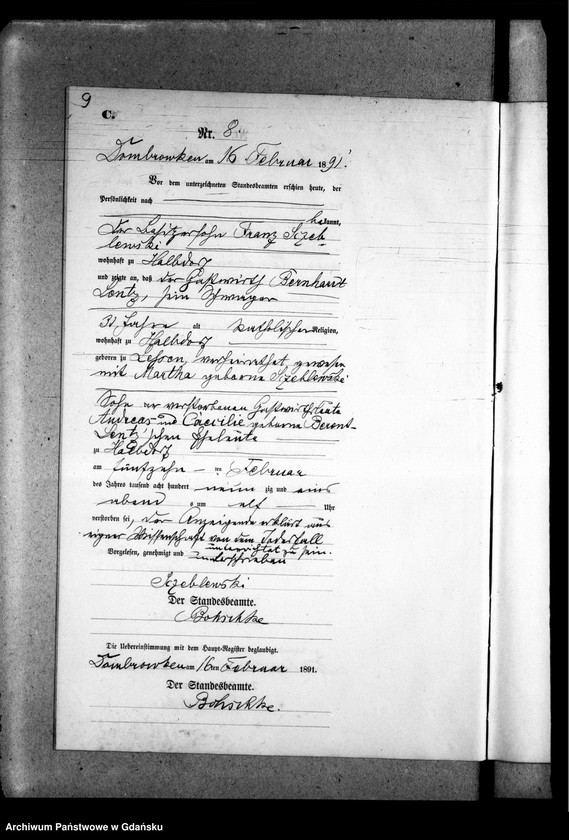 9
C.
Nr. 8.
Dombrowken am 16 Februar 1891.
Vor dem unterzeichneten Standesbeamten erschien heute, der
Persönlichkeit nach
bekannt,
der Besitzersohn Franz Szeb-
lewski
wohnhaft zu Halbdorf
und zeigte an, daß der Gastwirth Bernhard
Lentz, sein Schwager
31 Jahre alt katholischer Religion,
wohnhaft zu Halbdorf
geboren zu Lessen, verheirathet gewesen
mit Martha geborene Szeblewski
Sohn der verstorbenen Gastwirthsleute
Andreas und Caecilie geborne Berent-
Lentz'schen Eheleute
zu Halbdorf
am fünfzehn ten Februar
des Jahres tausend acht hundert neun zig und eins
abends um elf Uhr
verstorben sei, der Anzeigende erklärt aus
eigner Wissenschaft von dem Todesfall
unterrichtet zu sein.
Vorgelesen, genehmigt und unterschrieben
Szeblewski
Der Standesbeamte.
Bohschke
Die Uebereinstimmung mit dem Haupt-Register beglaubigt.
Dombrowken am 16ten Februar 1891.
Der Standesbeamte.
Bohschke.
Archiwum Państwowe w Gdańsku